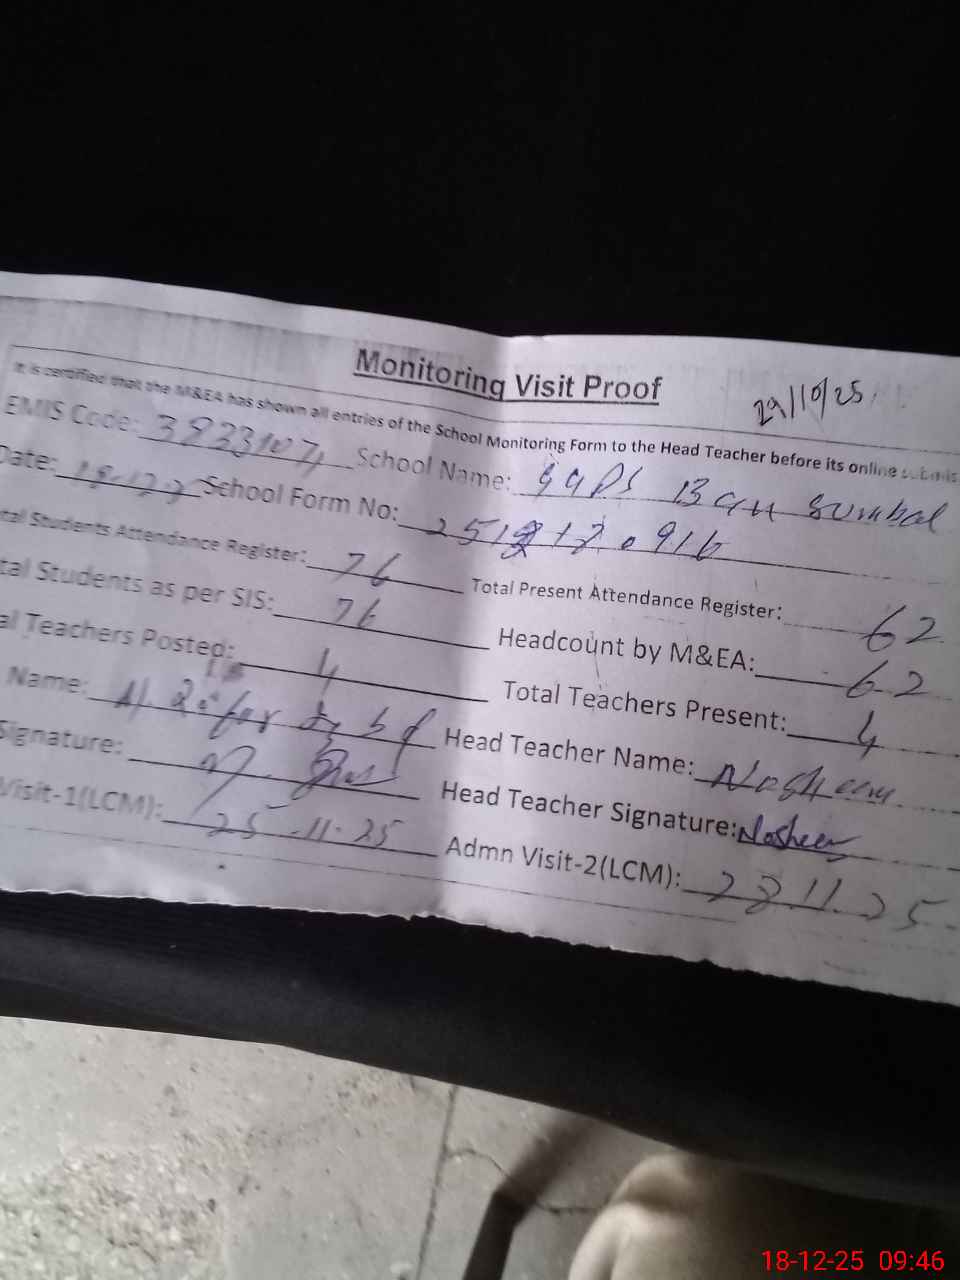 Monitoring Visit Proof
29/10/25
It is certified that the M&EA has shown all entries of the School Monitoring Form to the Head Teacher before its online submis
EMIS Code: 38331074 School Name: GGPS Ban Sumbal
Date: 18-12-2 School Form No: 251217.0916
tal Students Attendance Register: 76 Total Present Attendance Register: 62
tal Students as per SIS: 76 Headcount by M&EA: 62
al Teachers Posted: 4 Total Teachers Present: 4
Name: Head Teacher Name: Nosheen
Signature: Head Teacher Signature: Nosheen
Visit-1(LCM): 25-11-25 Admn Visit-2(LCM): 28.11.25
18-12-25 09:46